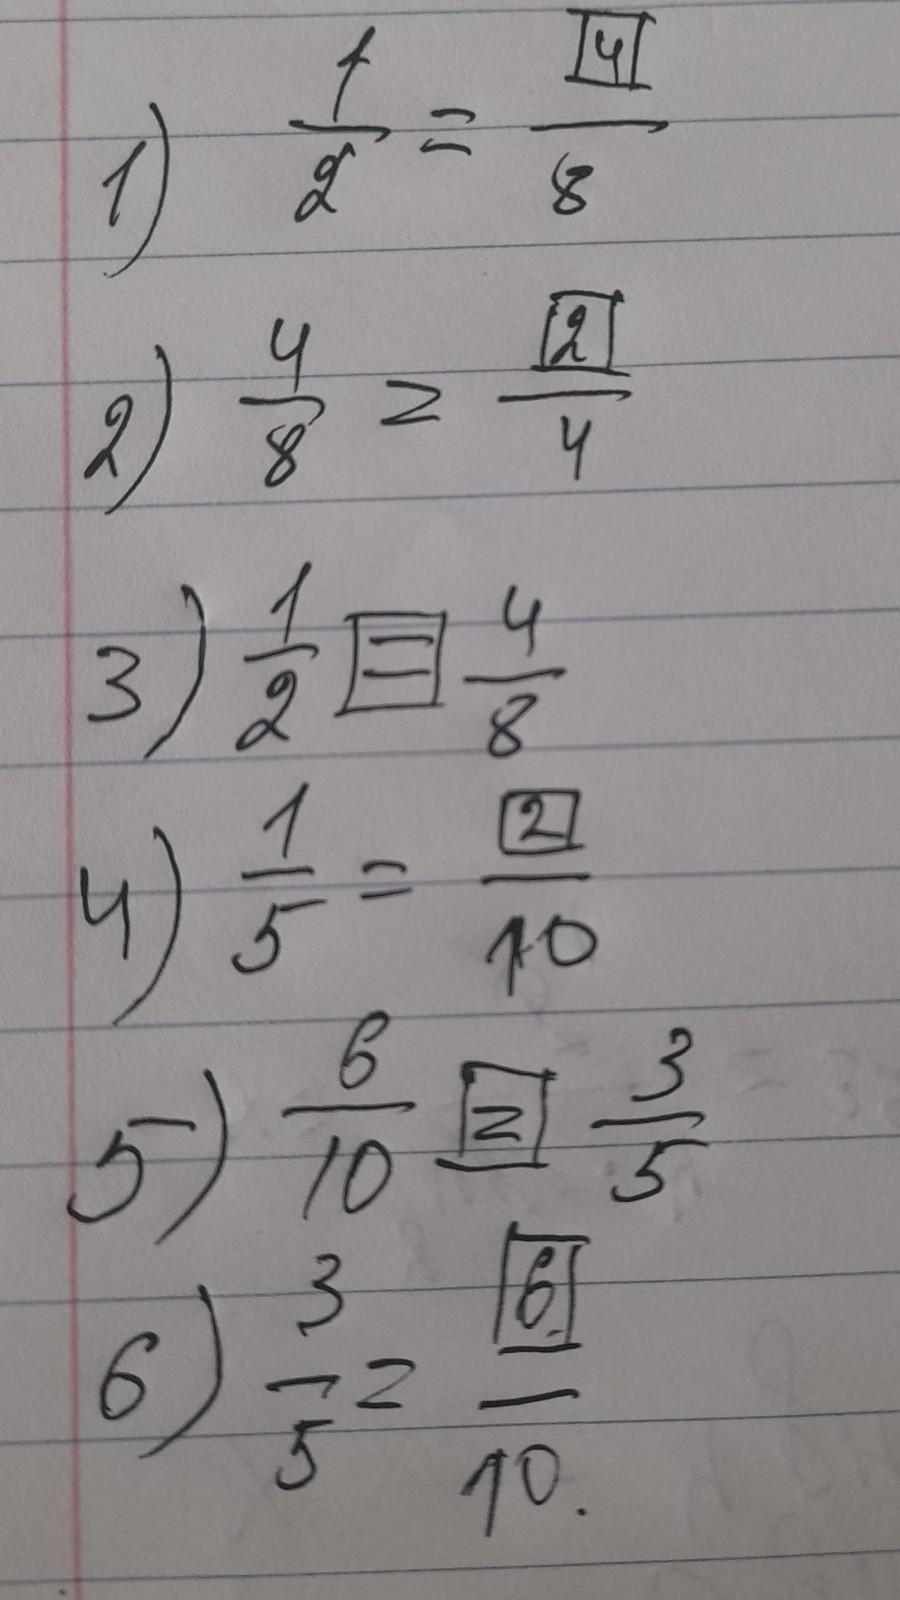 1) 1/2 = 4/8
2) 4/8 = 2/4
3) 1/2 = 4/8
4) 1/5 = 2/10
5) 6/10 = 3/5
6) 3/5 = 6/10.